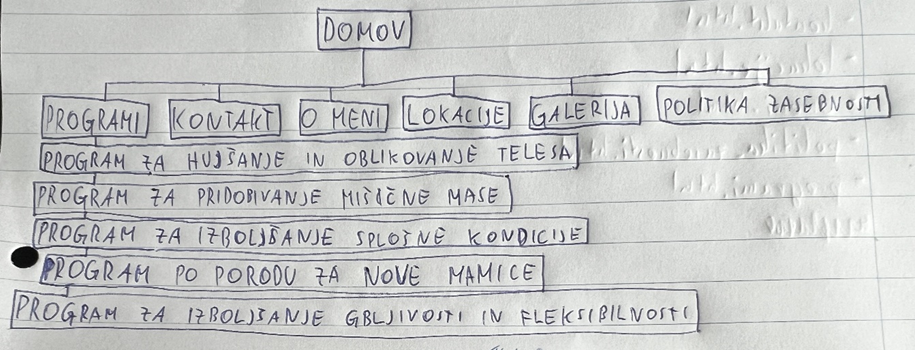 DOMOV
PROGRAMI KONTAKT O MENI LOKACIJE GALERIJA POLITIKA ZASEBNOSTI
PROGRAM ZA HUJŠANJE IN OBLIKOVANJE TELESA
PROGRAM ZA PRIDOBIVANJE MIŠIČNE MASE
PROGRAM ZA IZBOLJŠANJE SPLOŠNE KONDICIJE
PROGRAM PO PORODU ZA NOVE MAMICE
PROGRAM ZA IZBOLJŠANJE GBLJIVOSTI IN FLEKSIBILNOSTI